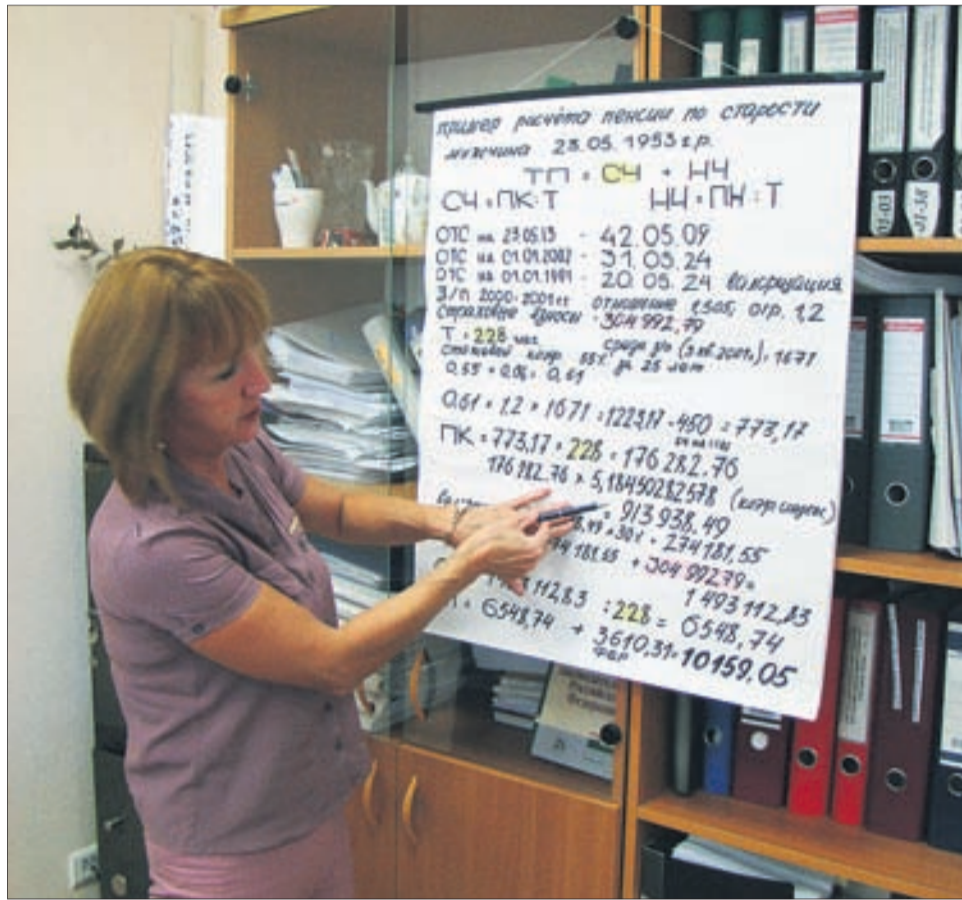 пример расчёта пенсии по старости
мужчина 23.05.1953 г.р.
ТП = СЧ + НЧ
СЧ = ПК : Т НЧ = ПН : Т
ОТС на 23.05.13 - 42.05.09
ОТС на 01.01.2002 - 31.03.24
ОТС на 01.01.1991 - 20.05.24 валоризация
З/П 2000-2001 гг отношение 1,505, огр. 1,2
страховые взносы - 304 992,79
Т = 228 мес средн з/п (3 кв. 2001г.) = 1671
стажевый коэф. 55% за 25 лет
0,55 + 0,06 = 0,61
0,61 × 1,2 × 1671 = 1223,17 - 450 = 773,17
ПК = 773,17 × 228 = 176 282.76
176 282.76 × 5,18450282578 (коэф индекс)
= 913 938.49
× 30% = 274 181,55
+ 304 992,79 =
1 493 112,83
112,83 : 228 = 6548,74
6548,74 + 3610,31 = 10159.05
ФБР
31-38